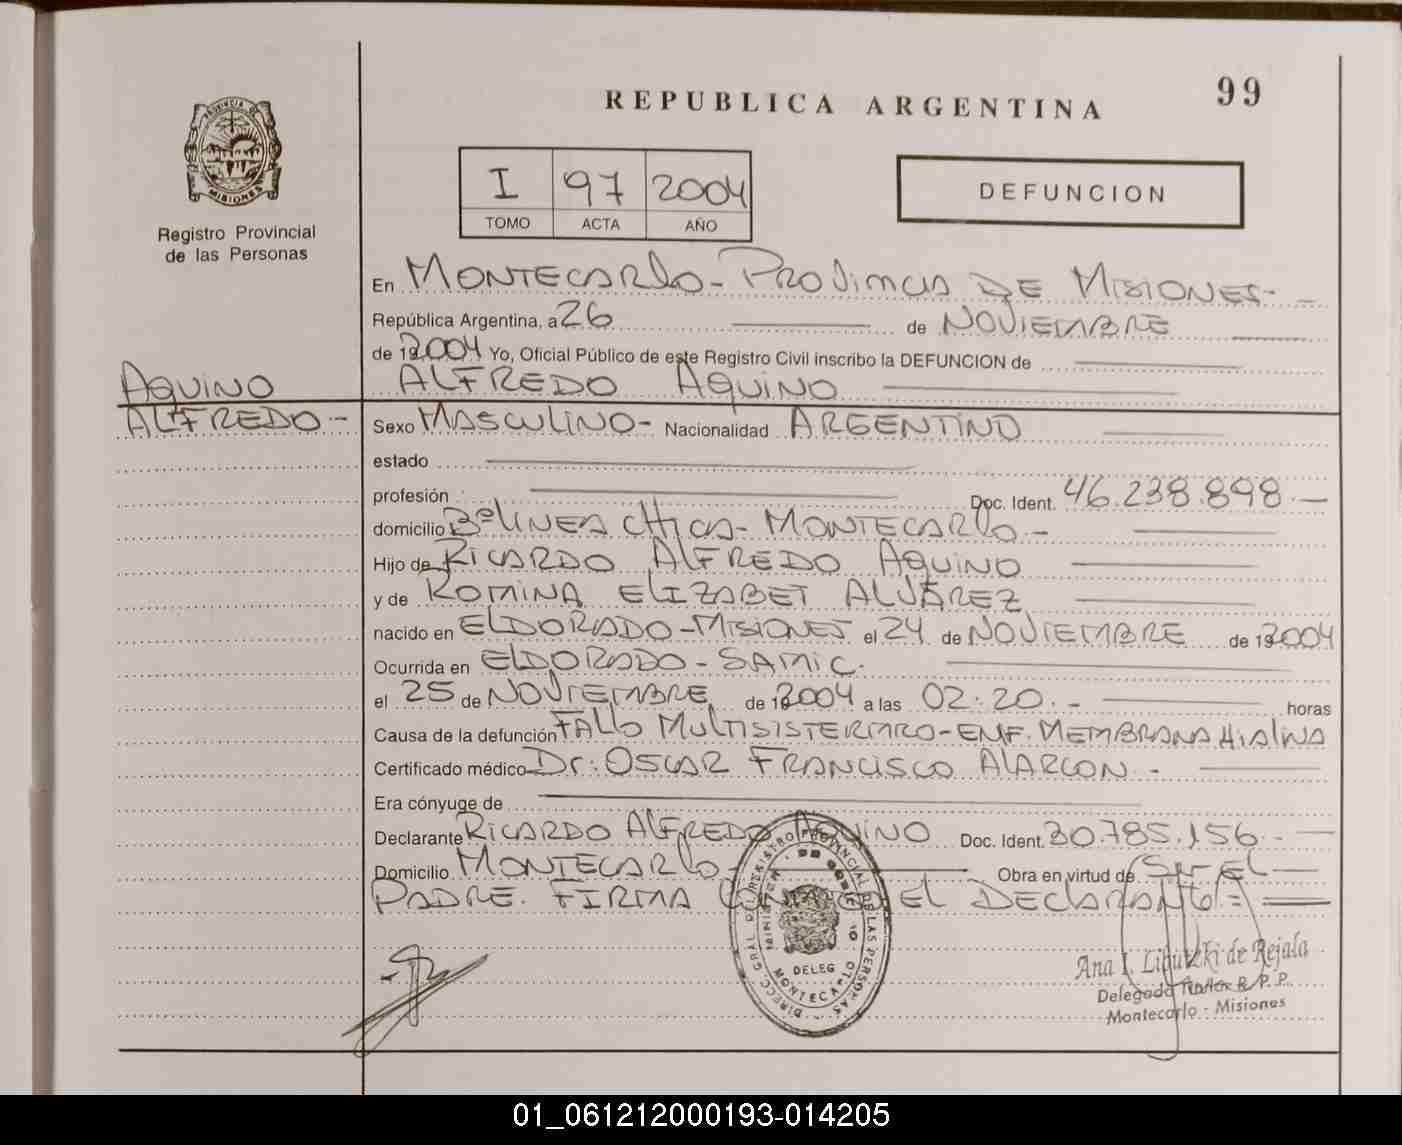 99
REPUBLICA ARGENTINA
PROVINCIA DE
MISIONES
Registro Provincial
de las Personas
I 97 2004
TOMO ACTA AÑO
DEFUNCION
En MONTECARLO - PROVINCIA DE MISIONES -
República Argentina, a 26 de NOVIEMBRE
de 192004 Yo, Oficial Público de este Registro Civil inscribo la DEFUNCION de
AQUINO ALFREDO AQUINO
ALFREDO - Sexo MASCULINO - Nacionalidad ARGENTINO
estado
profesión Doc. Ident. 46.238.898. -
domicilio Bº LINEA CHICA - MONTECARLO -
Hijo de RICARDO ALFREDO AQUINO
y de ROMINA ELIZABET ALVAREZ
nacido en ELDORADO - MISIONES el 24 de NOVIEMBRE de 192004
Ocurrida en ELDORADO - SAMIC.
el 25 de NOVIEMBRE de 192004 a las 02:20. - horas
Causa de la defunción FALLO MULTISISTEMARO - ENF. MEMBRANA HIALINA
Certificado médico Dr: OSCAR FRANCISCO ALARCON. -
Era cónyuge de
Declarante RICARDO ALFREDO AQUINO Doc. Ident. 30.785.156 -
Domicilio MONTECARLO Obra en virtud de Ser EL
PADRE. FIRMA EL DECLARANTE =
DIRECC. GRAL. DEL REGISTRO PROVINCIAL DE LAS PERSONAS
DELEG
MONTECARLO
Ana I. de Rejala
Delegada Titular R. P. P.
Montecarlo - Misiones
01_061212000193-014205